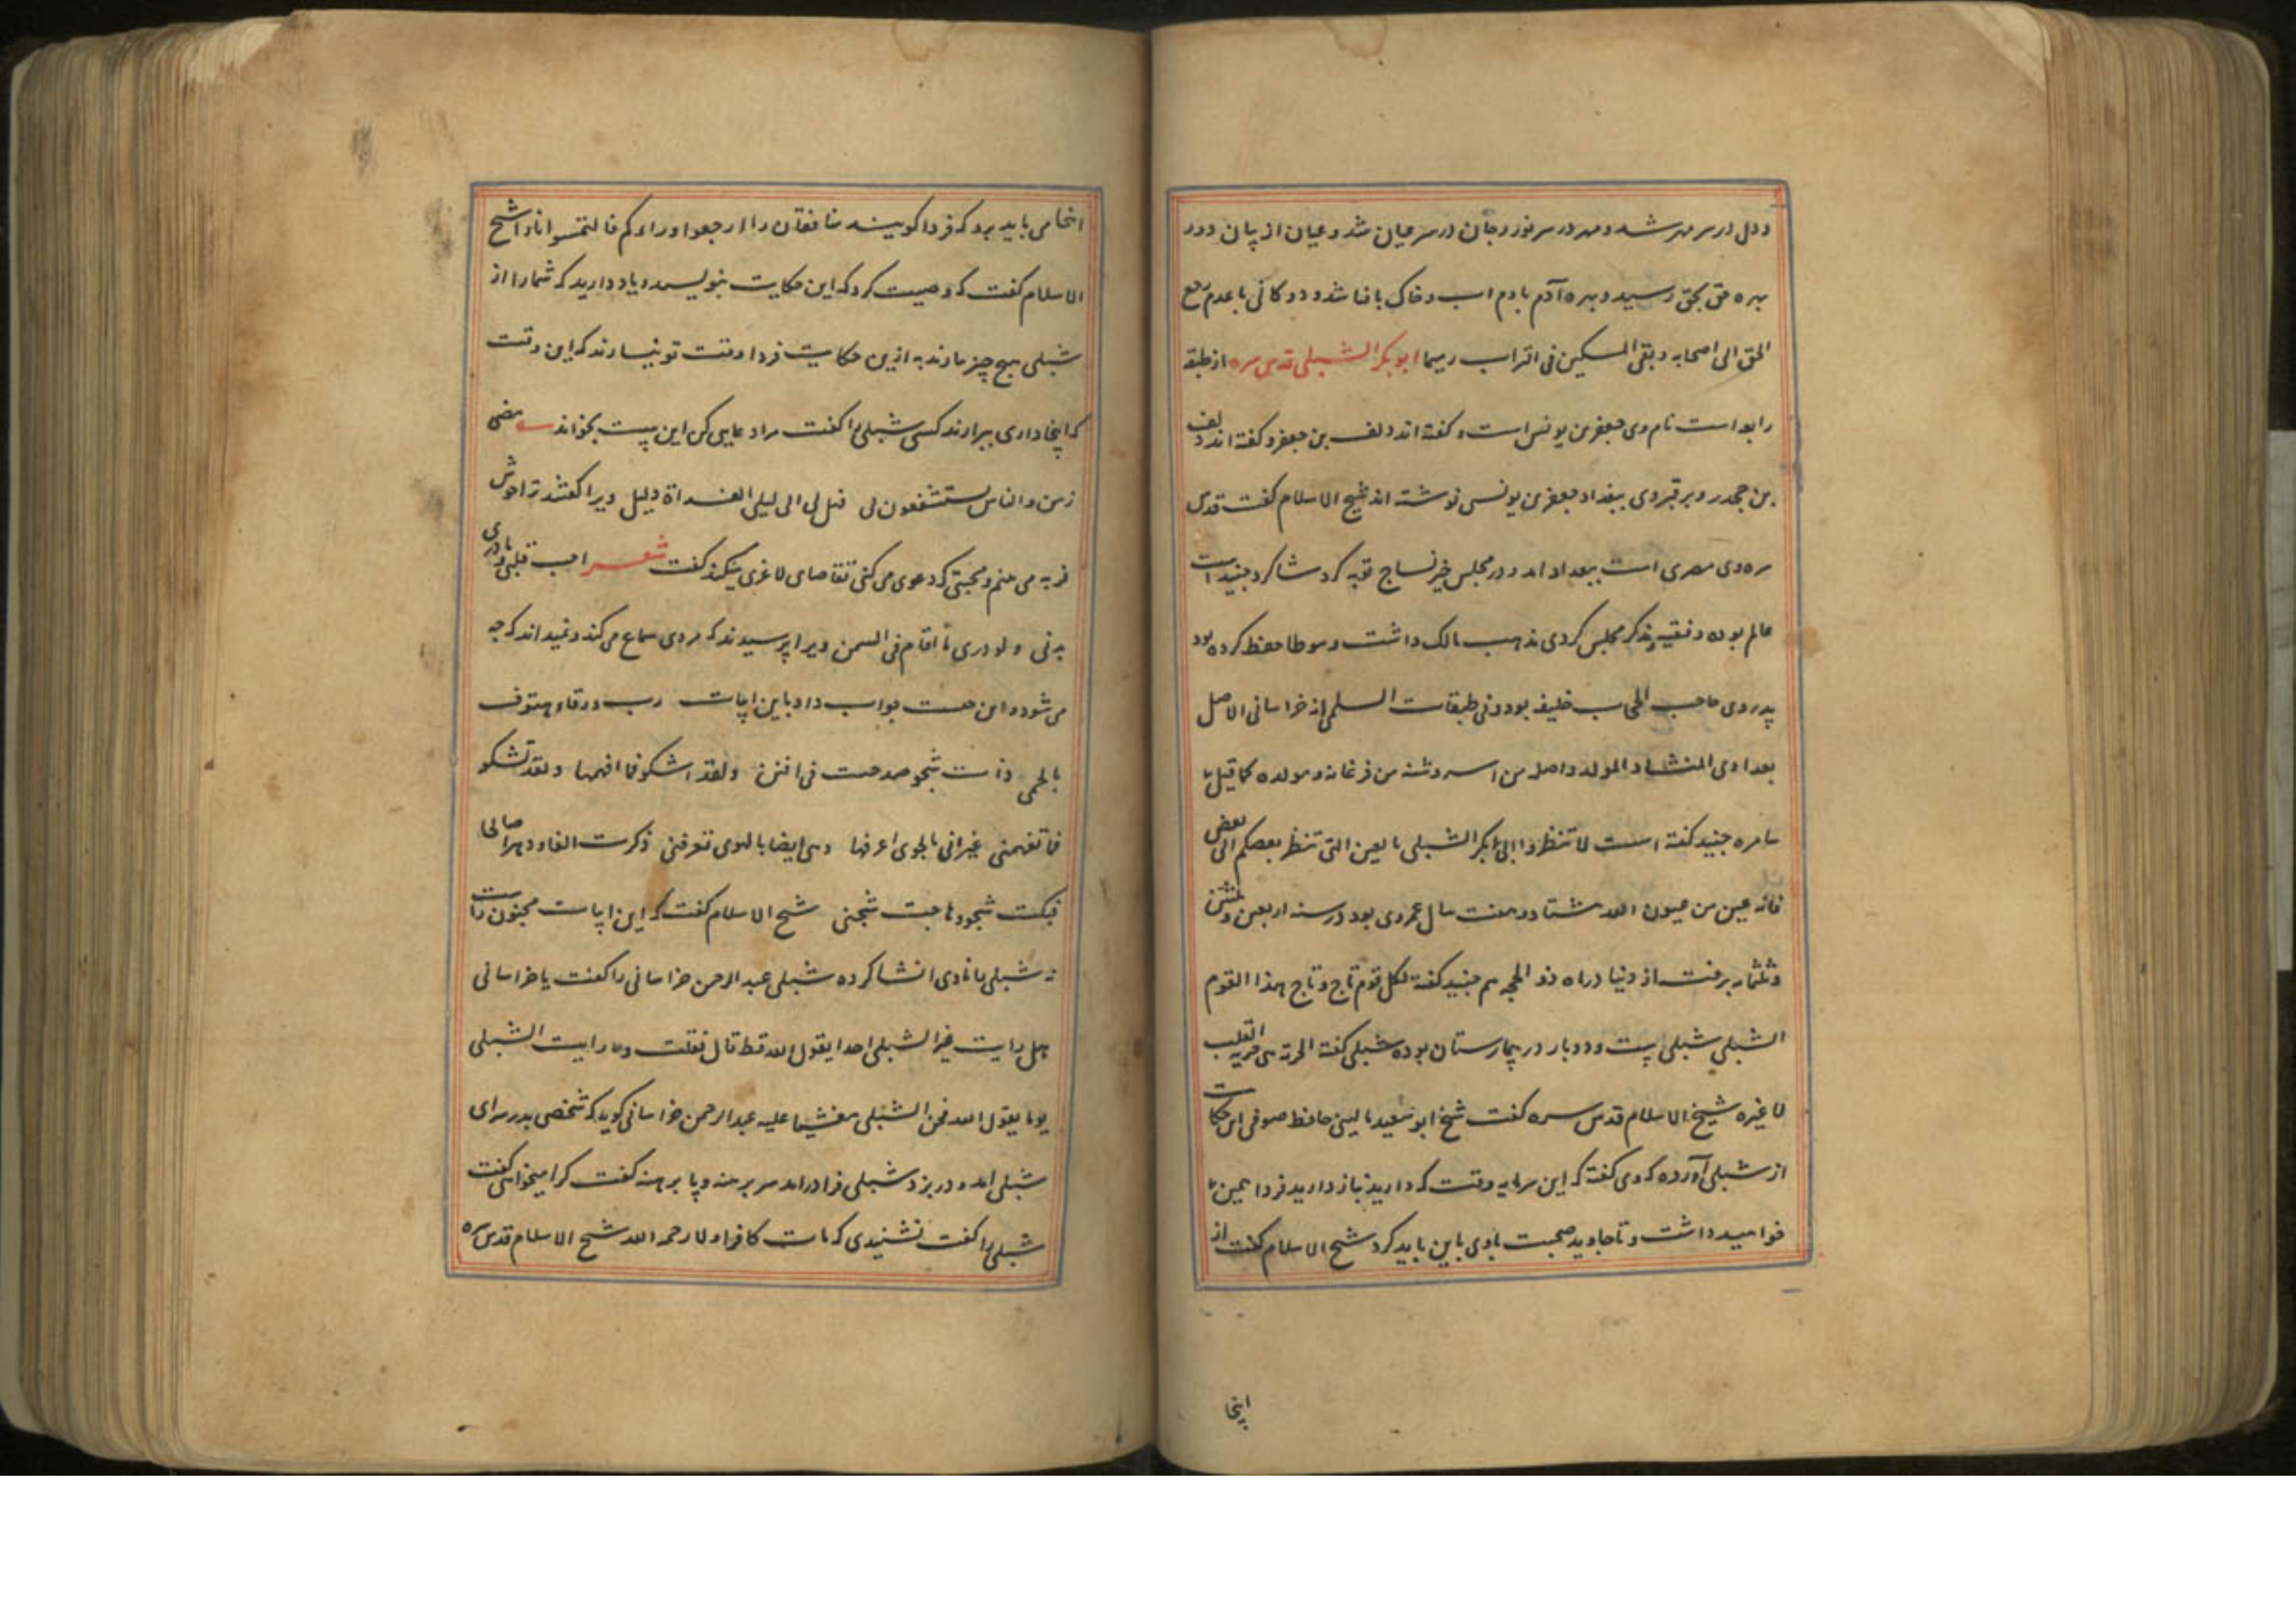 و دل در سر مهر شد و مهر در سر نور و جان در سر عیان شد و عیان از بیان دور
بهره حق بحق رسید و بهره آدم بادم اب و خاک با فنا شد و دوکانی با عدم رجع
الحق الی اصحابه و بقی المسکین فی التراب رمیما ابو بکر الشبلی قدس سره از طبقه
رابعه است نام وی جعفر بن یونس است و گفته اند دلف بن جعفر و گفته اند دلف
بن جحدر و بر قبر وی ببغداد جعفر بن یونس نوشته اند شیخ الاسلام گفت قدس
سره وی مصری است ببغداد امد و در مجلس خیر نساج توبه کرد شاکرد جنید است
عالم بوده و فقیه و مذکر مجلس کردی مذهب مالک داشت و موطا حفظ کرده بود
پدر وی حاجب الحجاب خلیفه بود و فی طبقات السلمی انه خراسانی الاصل
بغدادی المنشاء و المولد و اصله من اسروشنه من فرغانه و مولده کما قیل بـ
سامره جنید گفته است لا تنظروا الی ابی بکر الشبلی بالعین التی تنظر بعضکم الی بعض
فانه عین من عیون الله هشتاد و هفت سال عمر وی بود در سنه اربعین و ثلثین
و ثلثمایه برفت از دنیا در ماه ذو الحجه هم جنید گفته لکل قوم تاج و تاج هذا القوم
الشبلی شبلی بیست و دو بار در بیمارستان بوده شبلی گفته الحریة هی حریة القلب
لا غیره شیخ الاسلام قدس سره گفت شیخ ابو سعید مالینی حافظ صوفی این حکایت
از شبلی آورده که وی گفته که این سرمایه وقت که دارید نیاز دارید فردا همین
خواهید داشت و تا جاوید صحبت با وی باین باید کرد شیخ الاسلام گفت از
اینجا
اینجا می باید برد که فردا گویند منافقان را ارجعوا وراءکم فالتمسوا نورا شیخ
الاسلام گفت که وصیت کرد که این حکایت بنویسید و یاد دارید که شمارا از
شبلی هیچ چیز نماند به ازین حکایت فردا وقت تو نیارند که این وقت
که اینجا داری ببرارند کسی شبلی را گفت مرا دعایی کن این بیت بخواند مضی
زمن و الناس یستشفعون لی فهل لی الی لیلی الغداة دلیل ویرا گفتند ترا خوش
فربه می بینم و محبتی که دعوی می کنی تقاضای لاغری میکند گفت شعر احب قلبی و ما دری
بدنی و لو دری ما اقام فی السمن ویرا پرسیدند که مردی سماع می کند و نمیداند که چه
می شنود و این چیست جواب داد باین ابیات رب ورقاء هتوف
بالحمی ذات شجو صدحت فی افنن و لقد اشکو فما افهمها و لقد تشکو
فما تفهمنی غیر انی بالجوی اعرفها و هی ایضا بالهوی تعرفنی ذکرت الفا و دهرا صالحا
فبکت شجوا فهاجت شجنی شیخ الاسلام گفت که این ابیات مجنون راست
نه شبلی را نادی انشا کرده شبلی عبد الرحمن خراسانی را گفت یا خراسانی
هل رایت غیر الشبلی احدا یقول الله قط قال فقلت و ما رایت الشبلی
یوما یقول الله فخر الشبلی مغشیا علیه عبد الرحمن خراسانی گوید که شخصی بدر سرای
شبلی امد و در بزد شبلی فرا در امد سر برهنه و پا برهنه گفت کرا میخواهی گفت
شبلی را گفت نشنیدی که مات کافرا و لا رحمه الله شیخ الاسلام قدس سره